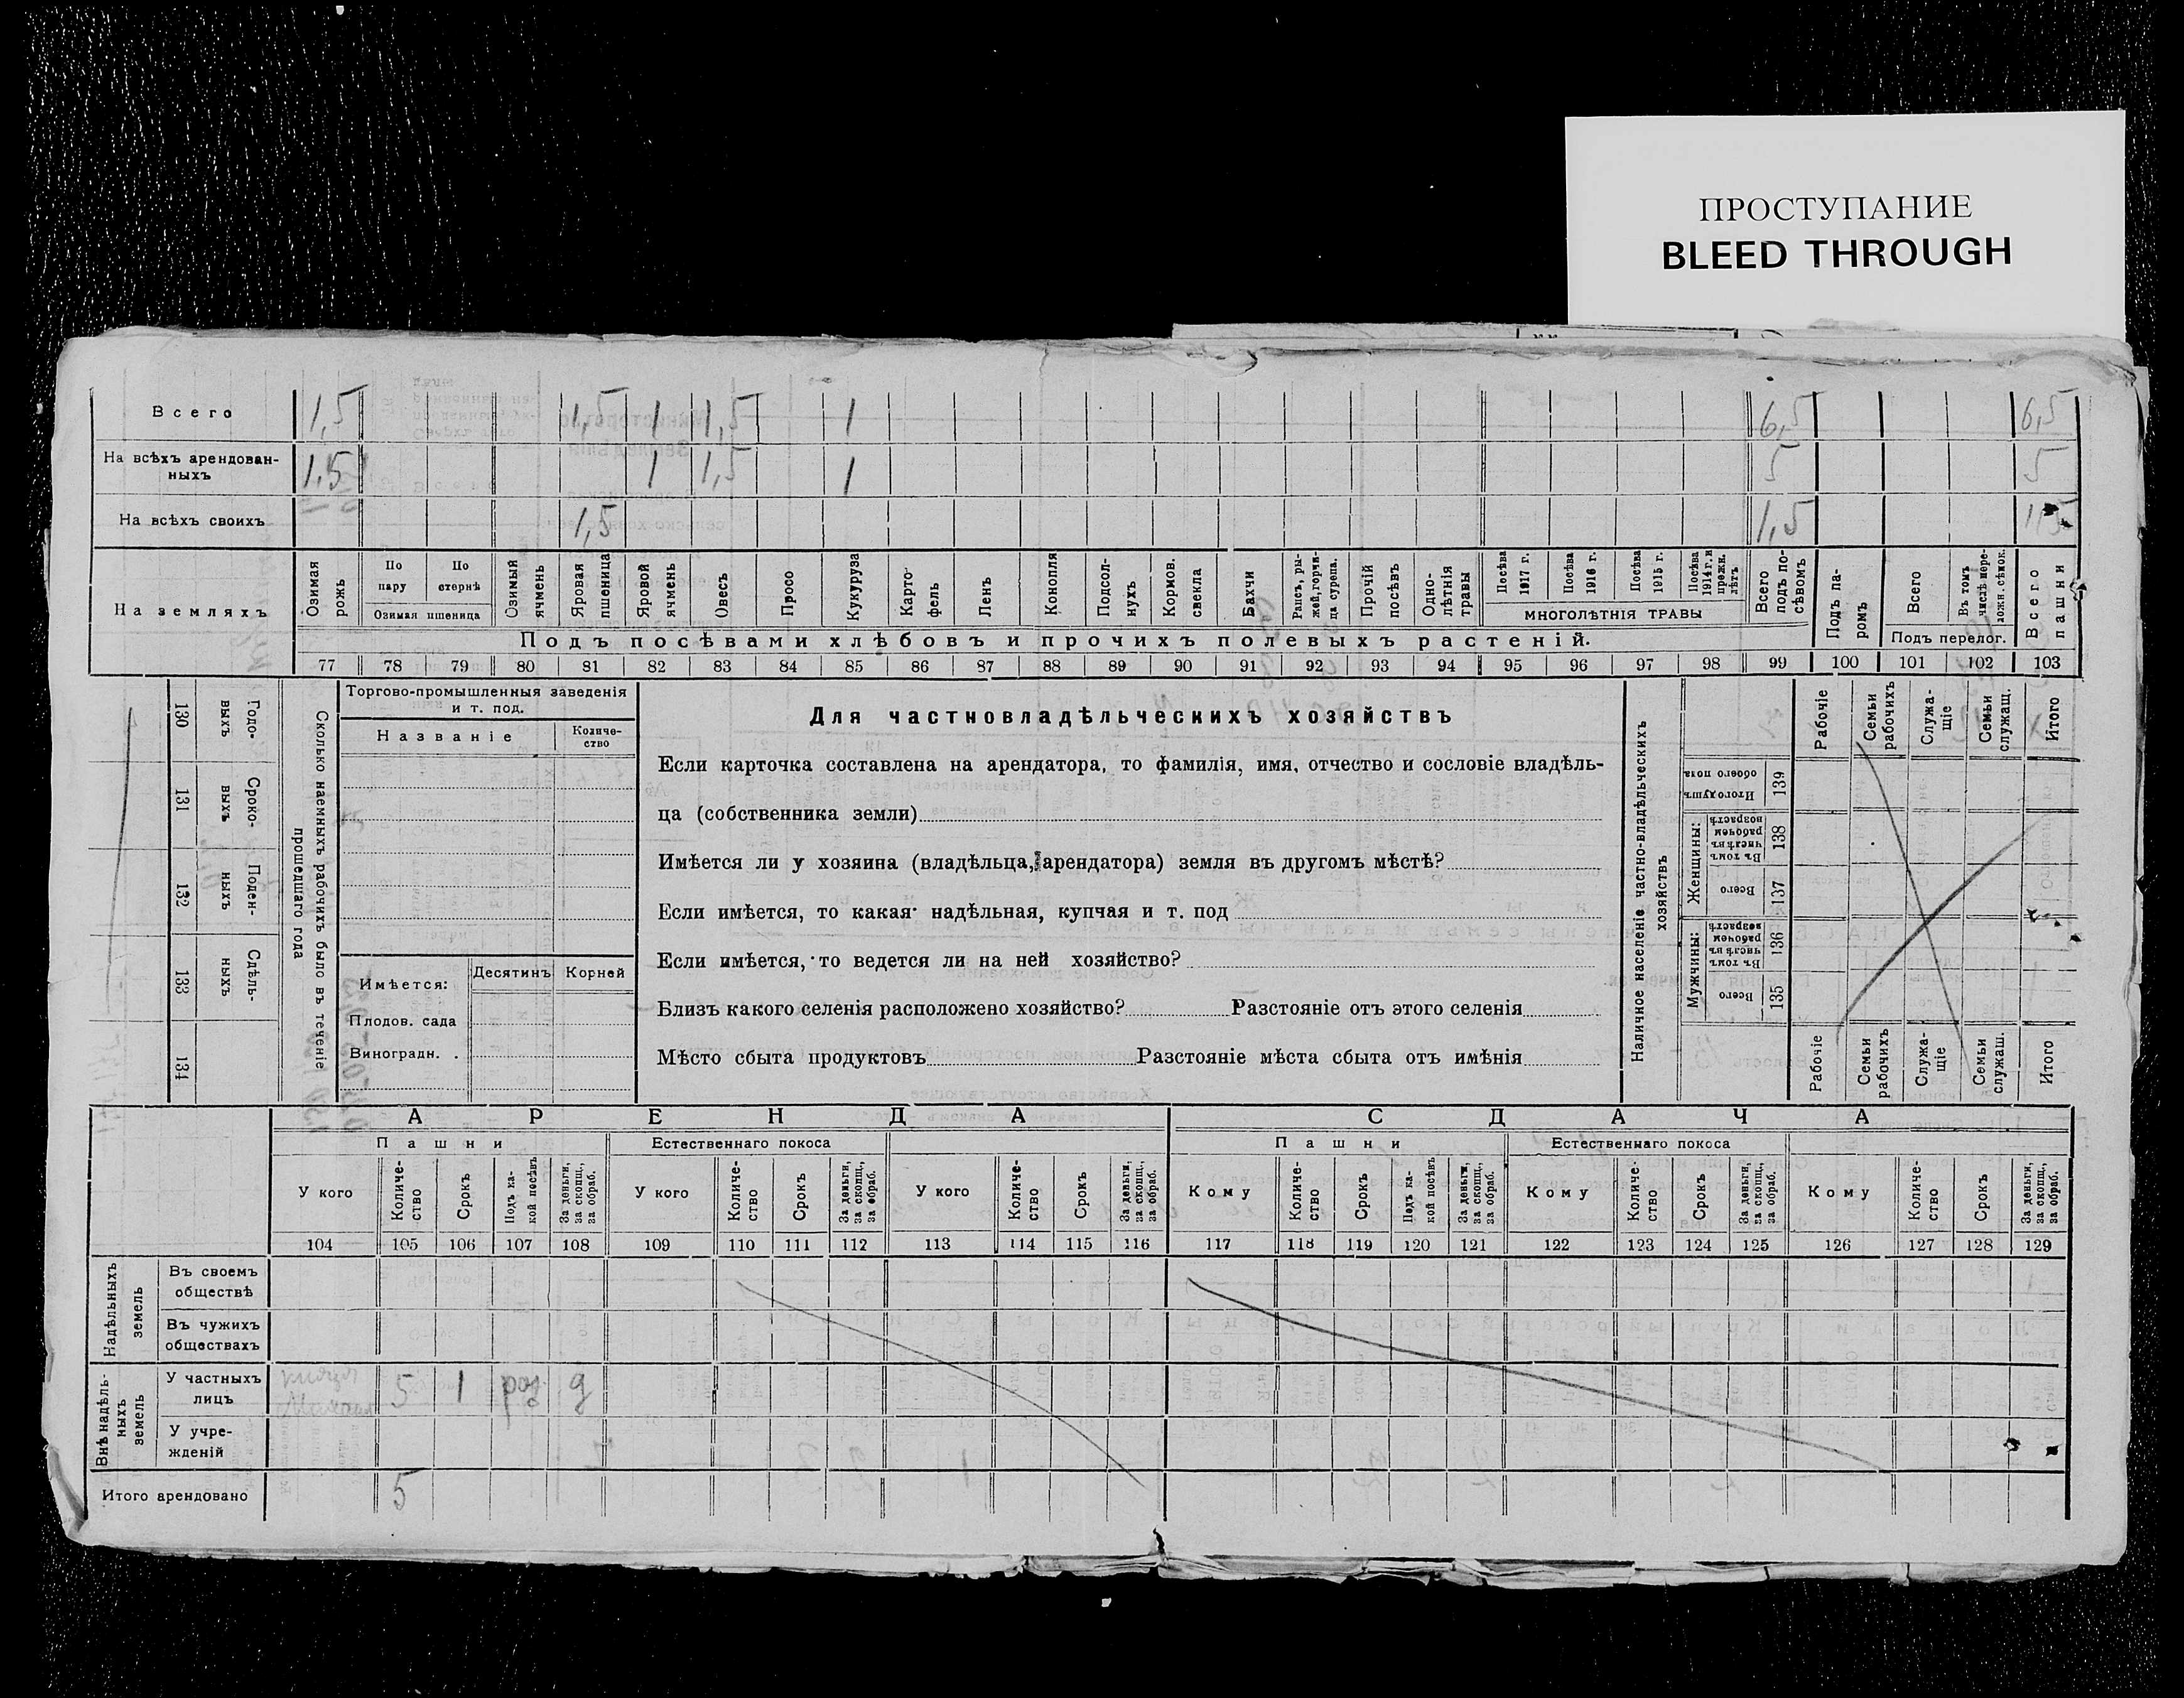 ПРОСТУПАНИЕ
BLEED THROUGH
Всего 1,5 1,5 1 1,5 1 6,5 6,5
На всѣхъ арендован-
ныхъ 1,5 1 1,5 1 5 5
На всѣхъ своихъ 1,5 1,5
На земляхъ
Озимая рожь
По пару
По стернѣ
Озимая пшеница
Озимый ячмень
Яровая пшеница
Яровой ячмень
Овесъ
Просо
Кукуруза
Карто-
фель
Ленъ
Конопля
Подсол-
нухъ
Кормов. свекла
Бахчи
Рапсъ, ры-
жей, горчи-
ца сурепа.
Прочій посѣвъ
Одно-
лѣтнія травы
Посѣва 1917 г.
Посѣва 1916 г.
Посѣва 1915 г.
Посѣва 1914 г. и прежн. лѣтъ
МНОГОЛѢТНІЯ ТРАВЫ
Всего подъ по-
сѣвомъ
Подъ па-
ромъ
Всего
Въ томъ числѣ пере-
ложн. сѣнок.
Подъ перелог.
Всего пашни
Подъ посѣвами хлѣбовъ и прочихъ полевыхъ растеній.
77 78 79 80 81 82 83 84 85 86 87 88 89 90 91 92 93 94 95 96 97 98 99 100 101 102 103
130 Годо-
выхъ
131 Сроко-
выхъ
132 Поден-
ныхъ
133 Сдѣль-
ныхъ
134
Сколько наемныхъ рабочихъ было въ теченіе
прошедшаго года
Торгово-промышленныя заведенія
и т. под.
Названіе
Количе-
ство
Имѣется:
Десятинъ Корней
Плодов. сада
Виноградн. .
Для частновладѣльческихъ хозяйствъ
Если карточка составлена на арендатора, то фамилія, имя, отчество и сословіе владѣль-
ца (собственника земли)
Имѣется ли у хозяина (владѣльца, арендатора) земля въ другомъ мѣстѣ?
Если имѣется, то какая: надѣльная, купчая и т. под
Если имѣется, то ведется ли на ней хозяйство?
Близъ какого селенія расположено хозяйство? Разстояніе отъ этого селенія
Мѣсто сбыта продуктовъ Разстояніе мѣста сбыта отъ имѣнія
Наличное населеніе частно-владѣльческихъ
хозяйствъ
Рабочіе
Семьи рабочихъ
Служа-
щіе
Семьи служащ.
Итого
Итого душъ обоего пола 139
Женщины:
Въ томъ числѣ въ рабочемъ возрастѣ 138
Всего 137
Мужчины:
Въ томъ числѣ въ рабочемъ возрастѣ 136
Всего 135
Рабочіе
Семьи рабочихъ
Служа-
щіе
Семьи служащ.
Итого
АРЕНДА СДАЧА
Пашни Естественнаго покоса Пашни Естественнаго покоса
У кого
Количе-
ство
Срокъ
Подъ ка-
кой посѣвъ
За деньги, за скопщ., за обраб.
У кого
Количе-
ство
Срокъ
За деньги, за скопщ., за обраб.
У кого
Количе-
ство
Срокъ
За деньги, за скопщ., за обраб.
Кому
Количе-
ство
Срокъ
Подъ ка-
кой посѣвъ
За деньги, за скопщ., за обраб.
Кому
Количе-
ство
Срокъ
За деньги, за скопщ., за обраб.
Кому
Количе-
ство
Срокъ
За деньги, за скопщ., за обраб.
104 105 106 107 108 109 110 111 112 113 114 115 116 117 118 119 120 121 122 123 124 125 126 127 128 129
Надѣльныхъ
земель
Въ своемъ
обществѣ
Въ чужихъ
обществахъ
Внѣ надѣль-
ныхъ
земель
У частныхъ
лицъ 5 1 роз д
У учре-
жденій
Итого арендовано 5